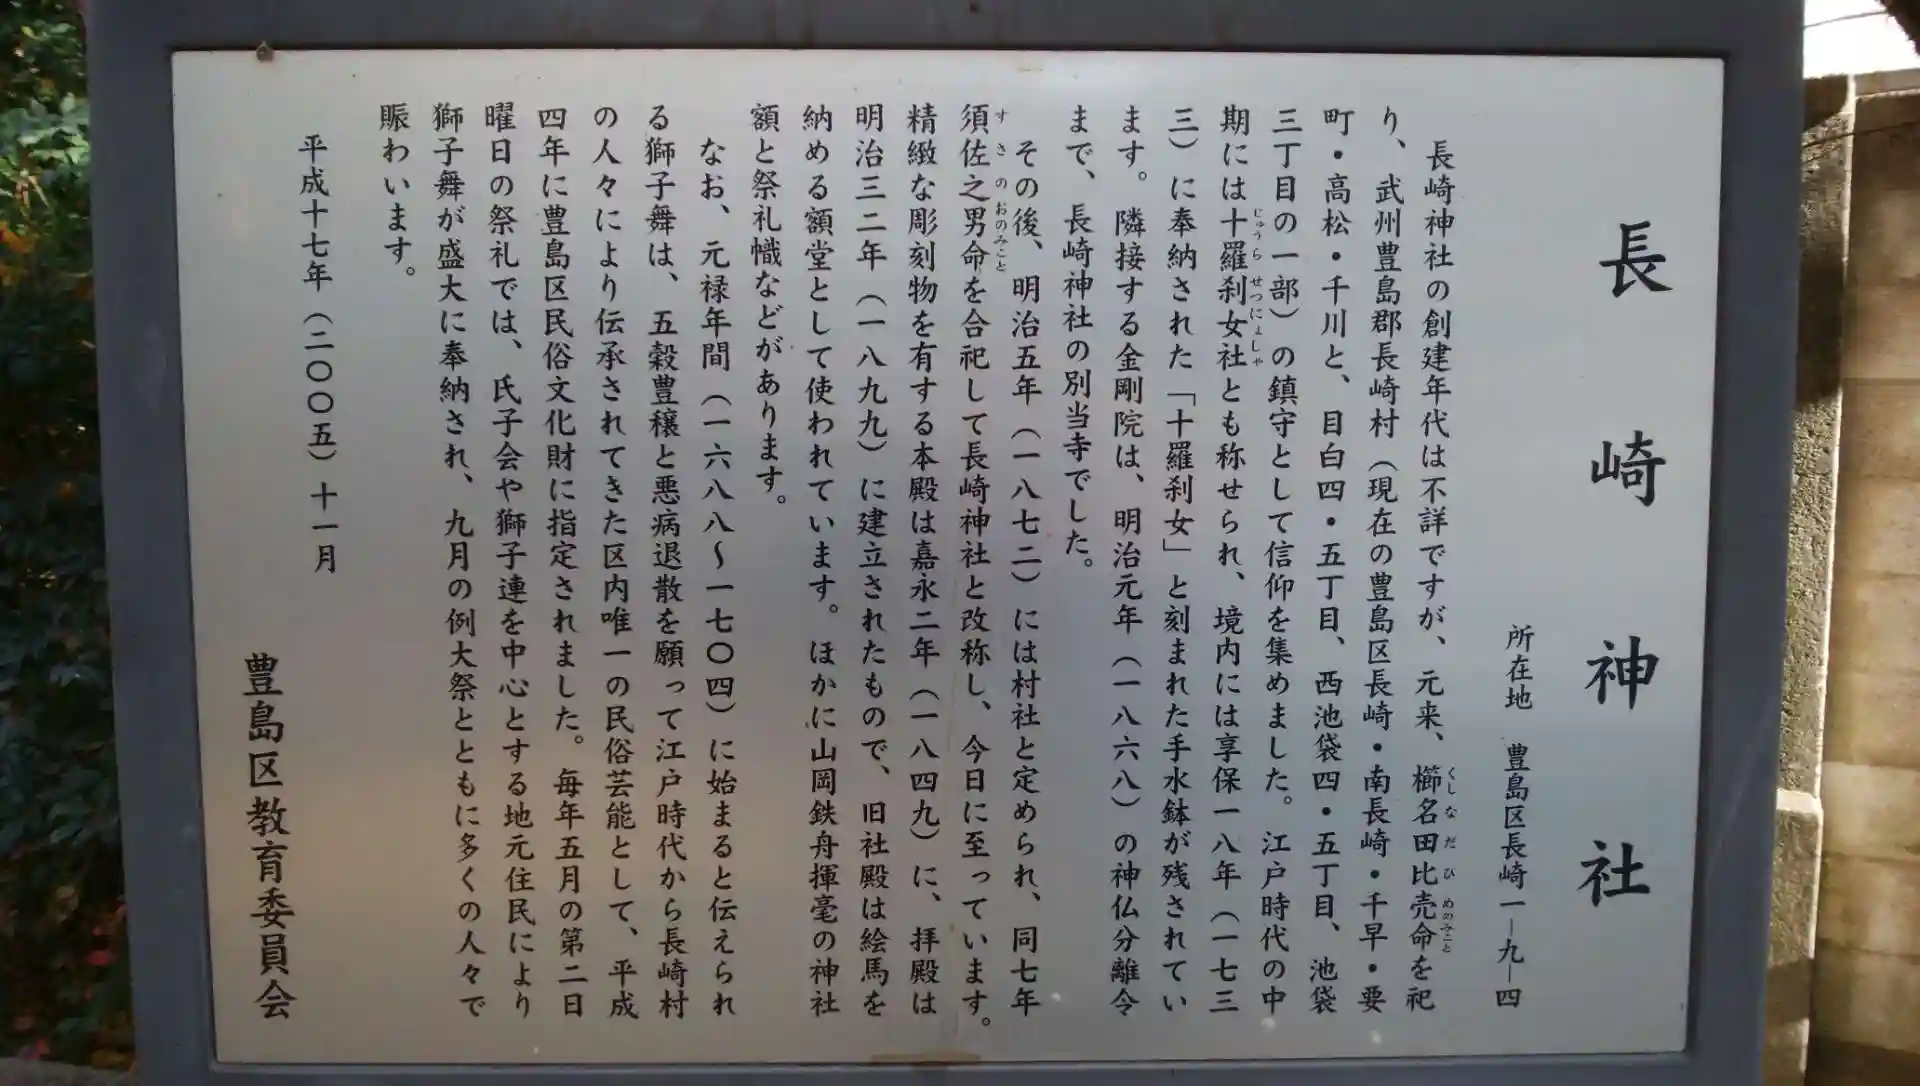 長崎神社
所在地　豊島区長崎一―九―四
長崎神社の創建年代は不詳ですが、元来、櫛名田比売命を祀
り、武州豊島郡長崎村（現在の豊島区長崎・南長崎・千早・要
町・高松・千川と、目白四・五丁目、西池袋四・五丁目、池袋
三丁目の一部）の鎮守として信仰を集めました。江戸時代の中
期には十羅刹女社とも称せられ、境内には享保一八年（一七三
三）に奉納された「十羅刹女」と刻まれた手水鉢が残されてい
ます。隣接する金剛院は、明治元年（一八六八）の神仏分離令
まで、長崎神社の別当寺でした。
その後、明治五年（一八七二）には村社と定められ、同七年
須佐之男命を合祀して長崎神社と改称し、今日に至っています。
精緻な彫刻物を有する本殿は嘉永二年（一八四九）に、拝殿は
明治三二年（一八九九）に建立されたもので、旧社殿は絵馬を
納める額堂として使われています。ほかに山岡鉄舟揮毫の神社
額と祭礼幟などがあります。
なお、元禄年間（一六八八～一七〇四）に始まると伝えられ
る獅子舞は、五穀豊穣と悪病退散を願って江戸時代から長崎村
の人々により伝承されてきた区内唯一の民俗芸能として、平成
四年に豊島区民俗文化財に指定されました。毎年五月の第二日
曜日の祭礼では、氏子会や獅子連を中心とする地元住民により
獅子舞が盛大に奉納され、九月の例大祭とともに多くの人々で
賑わいます。
平成十七年（二〇〇五）十一月
豊島区教育委員会